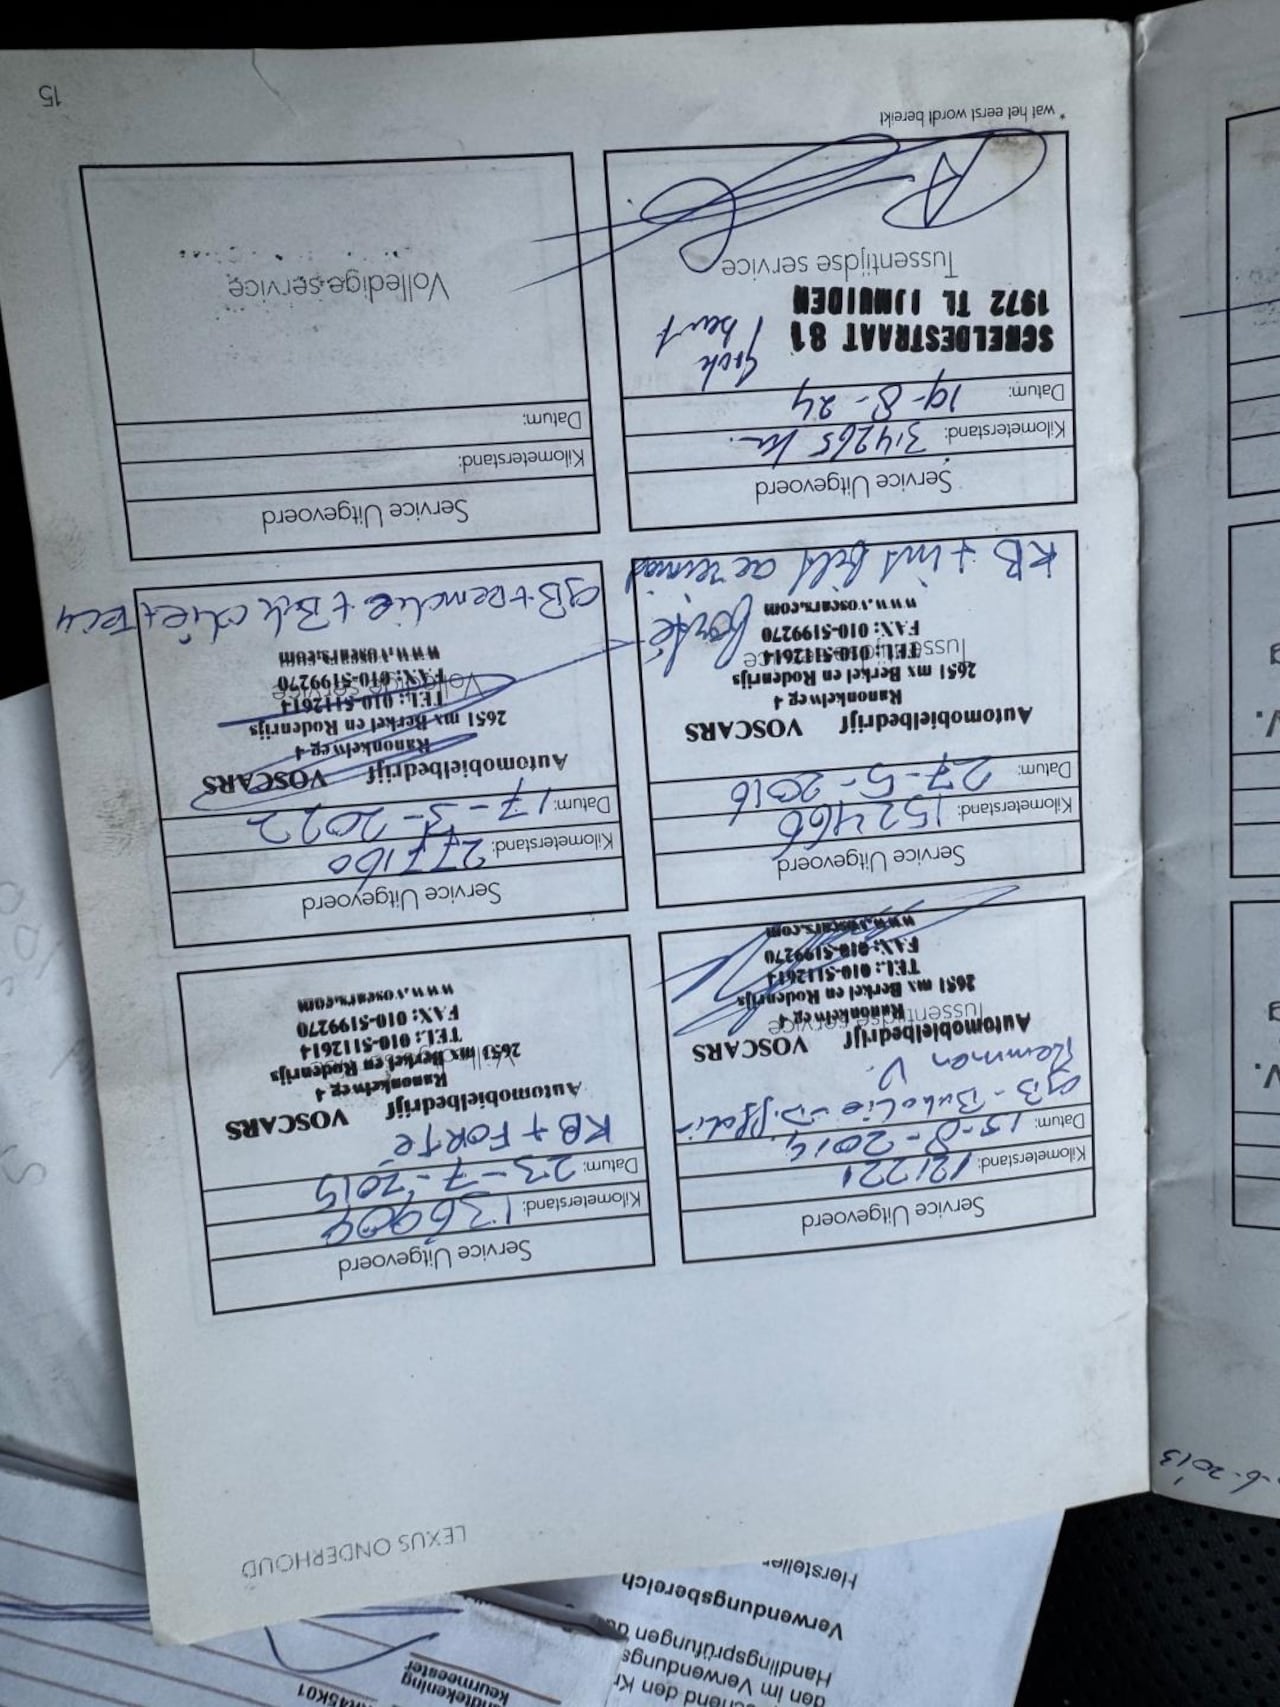 LEXUS ONDERHOUD
Service Uitgevoerd
Kilometerstand: 121221
Datum: 15-8-2014
Remmen V.
Automobielbedrijf VOSCARS
Ranonkelweg 4
2651 mx Berkel en Rodenrijs
TEL: 010-5112614
FAX: 010-5199270
www.voscars.com
Tussentijdse service
Service Uitgevoerd
Kilometerstand: 136909
Datum: 23-7-2015
KB + FORTÉ
Automobielbedrijf VOSCARS
Ranonkelweg 4
2651 mx Berkel en Rodenrijs
TEL: 010-5112614
FAX: 010-5199270
www.voscars.com
Service Uitgevoerd
Kilometerstand: 152466
Datum: 27-5-2016
Automobielbedrijf VOSCARS
Ranonkelweg 4
2651 mx Berkel en Rodenrijs
TEL: 010-5112614
FAX: 010-5199270
www.voscars.com
Tussentijdse service
forté
KB +
Service Uitgevoerd
Kilometerstand: 277160
Datum: 17-3-2022
Automobielbedrijf VOSCARS
Ranonkelweg 4
2651 mx Berkel en Rodenrijs
TEL: 010-5112614
FAX: 010-5199270
www.voscars.com
Volledige service
GB + remolie +
Service Uitgevoerd
Kilometerstand: 314265 km.
Datum: 19-8-24
SCHELDESTRAAT 81
1972 TL IJMUIDEN
Grote beurt
Tussentijdse service
Service Uitgevoerd
Kilometerstand:
Datum:
Volledige service
* wat het eerst wordt bereikt
15
-6-2013
Hersteller
Verwendungsbereich
Handlingsprüfungen
den im Verwendungs
den Kr
ndtekening
keurmeester